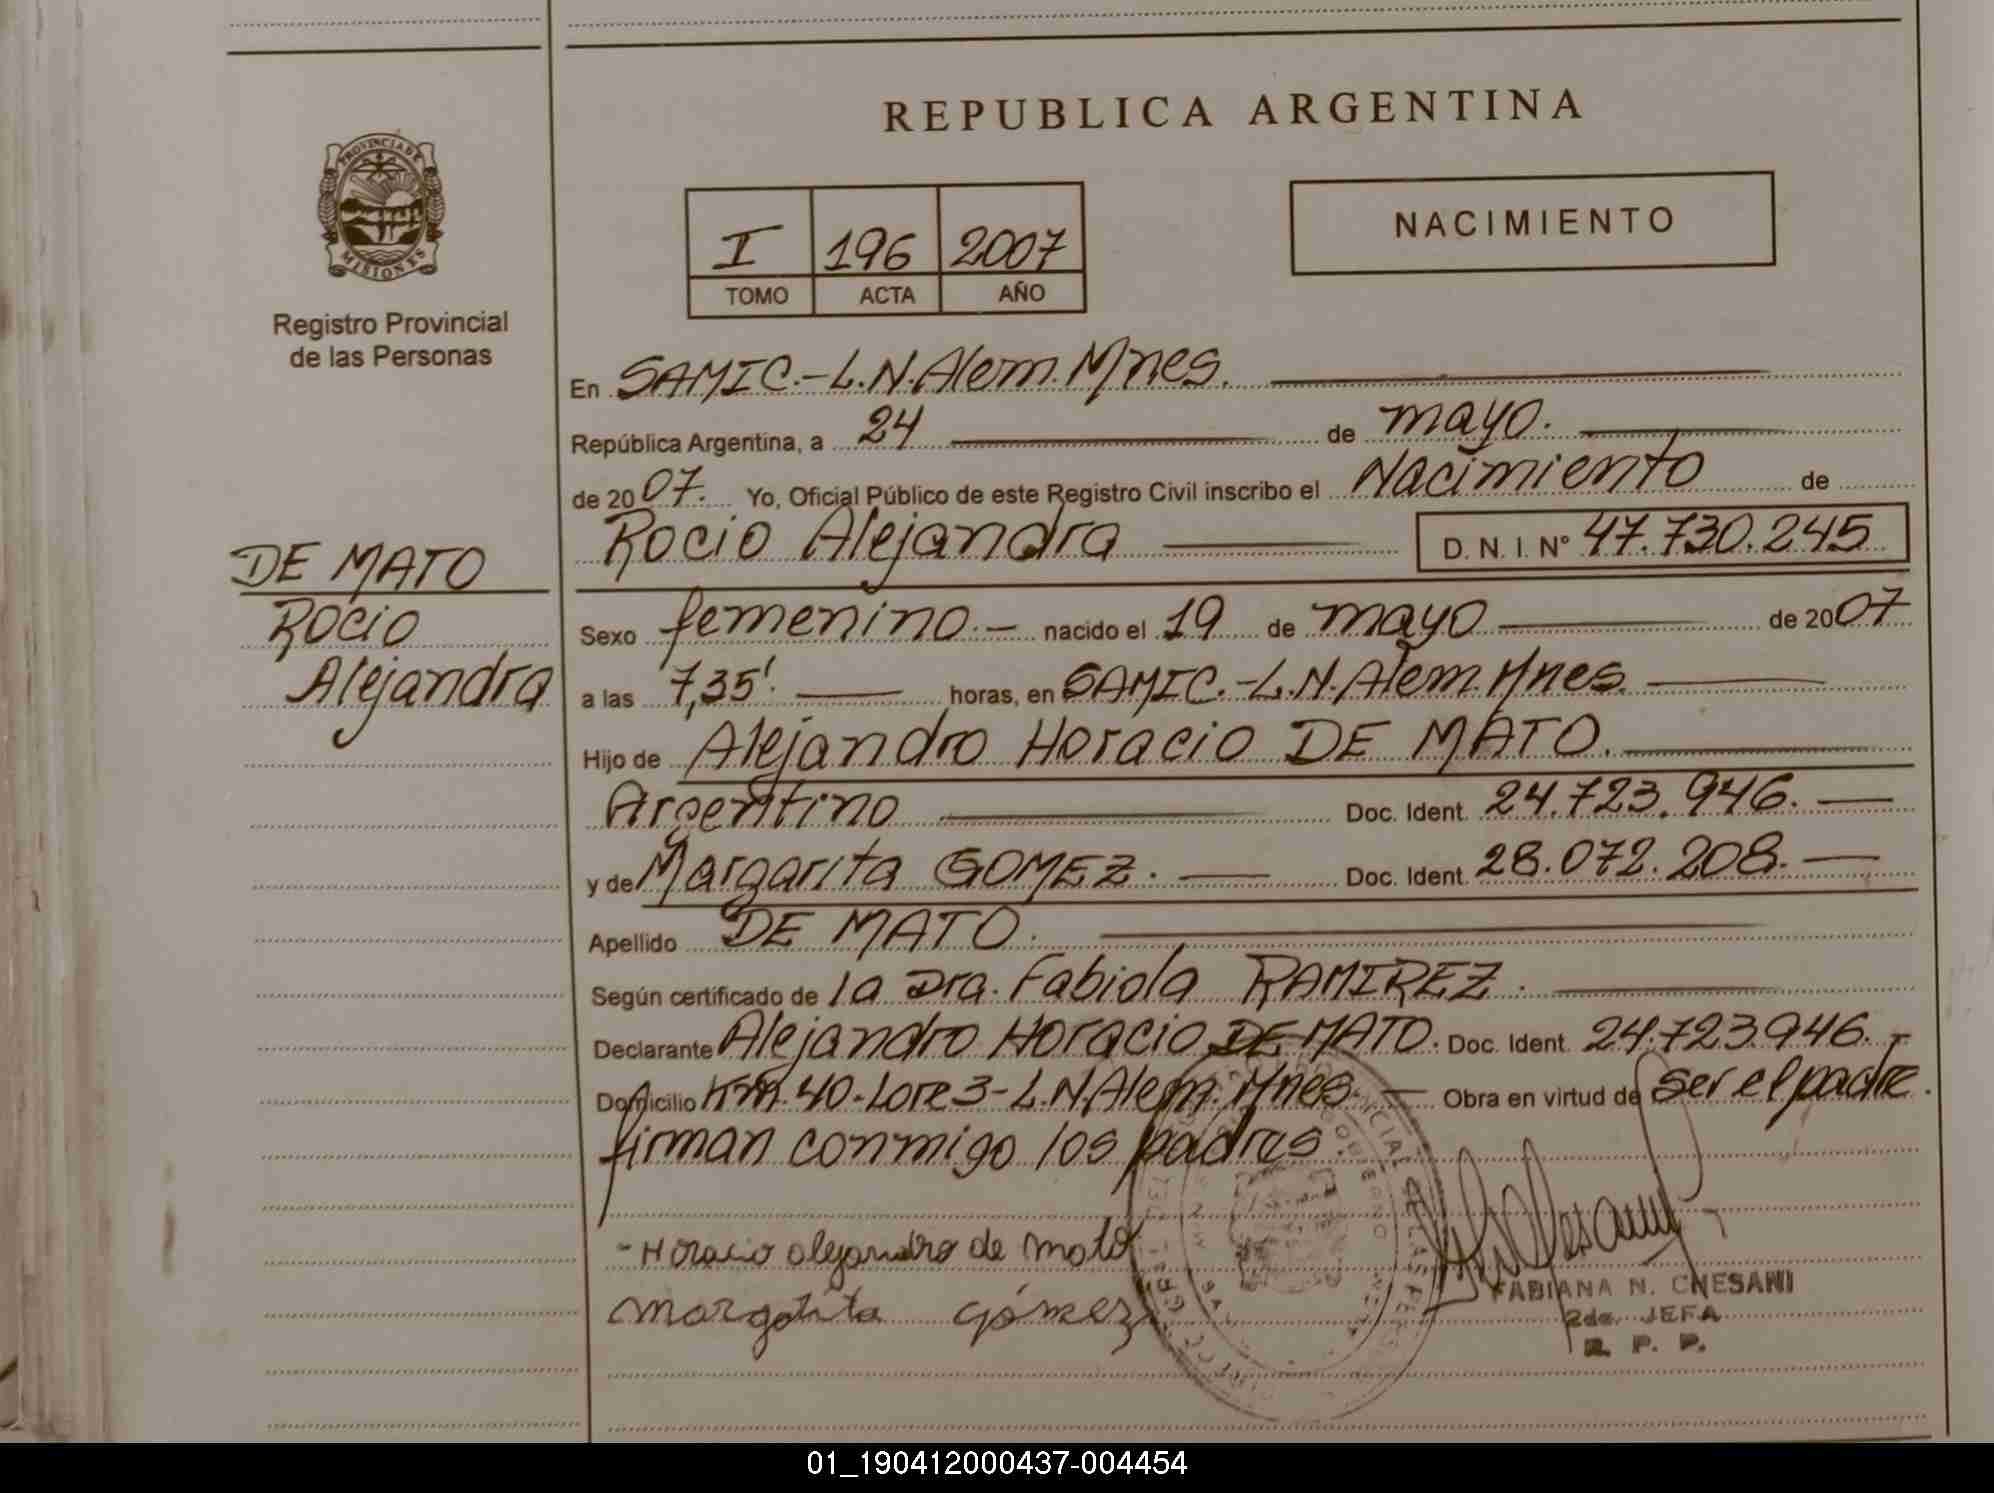 REPUBLICA ARGENTINA
PROVINCIA DE
MISIONES
Registro Provincial
de las Personas
I 196 2007
TOMO ACTA AÑO
NACIMIENTO
En SAMIC.-L.N.Alem.Mnes.
República Argentina, a 24 de mayo.
de 2007. Yo, Oficial Público de este Registro Civil inscribo el Nacimiento de
Rocio Alejandra D. N. I. N° 47.730.245
DE MATO
Rocio
Alejandra
Sexo femenino.- nacido el 19 de mayo de 2007
a las 7,35'. horas, en SAMIC.-L.N.Alem.Mnes.
Hijo de Alejandro Horacio DE MATO.
Argentino Doc. Ident. 24.723.946.
y de Margarita GOMEZ. Doc. Ident. 28.072.208.
Apellido DE MATO.
Según certificado de la Dra. Fabiola RAMIREZ.
Declarante Alejandro Horacio DE MATO. Doc. Ident. 24.723.946.-
Domicilio Km.40-Lote 3-L.N.Alem.Mnes. Obra en virtud de ser el padre.
firman conmigo los padres.
-Horacio alejandro de mato
margarita gómez
FABIANA N. CHESANI
2da. JEFA
R. P. P.
01_190412000437-004454